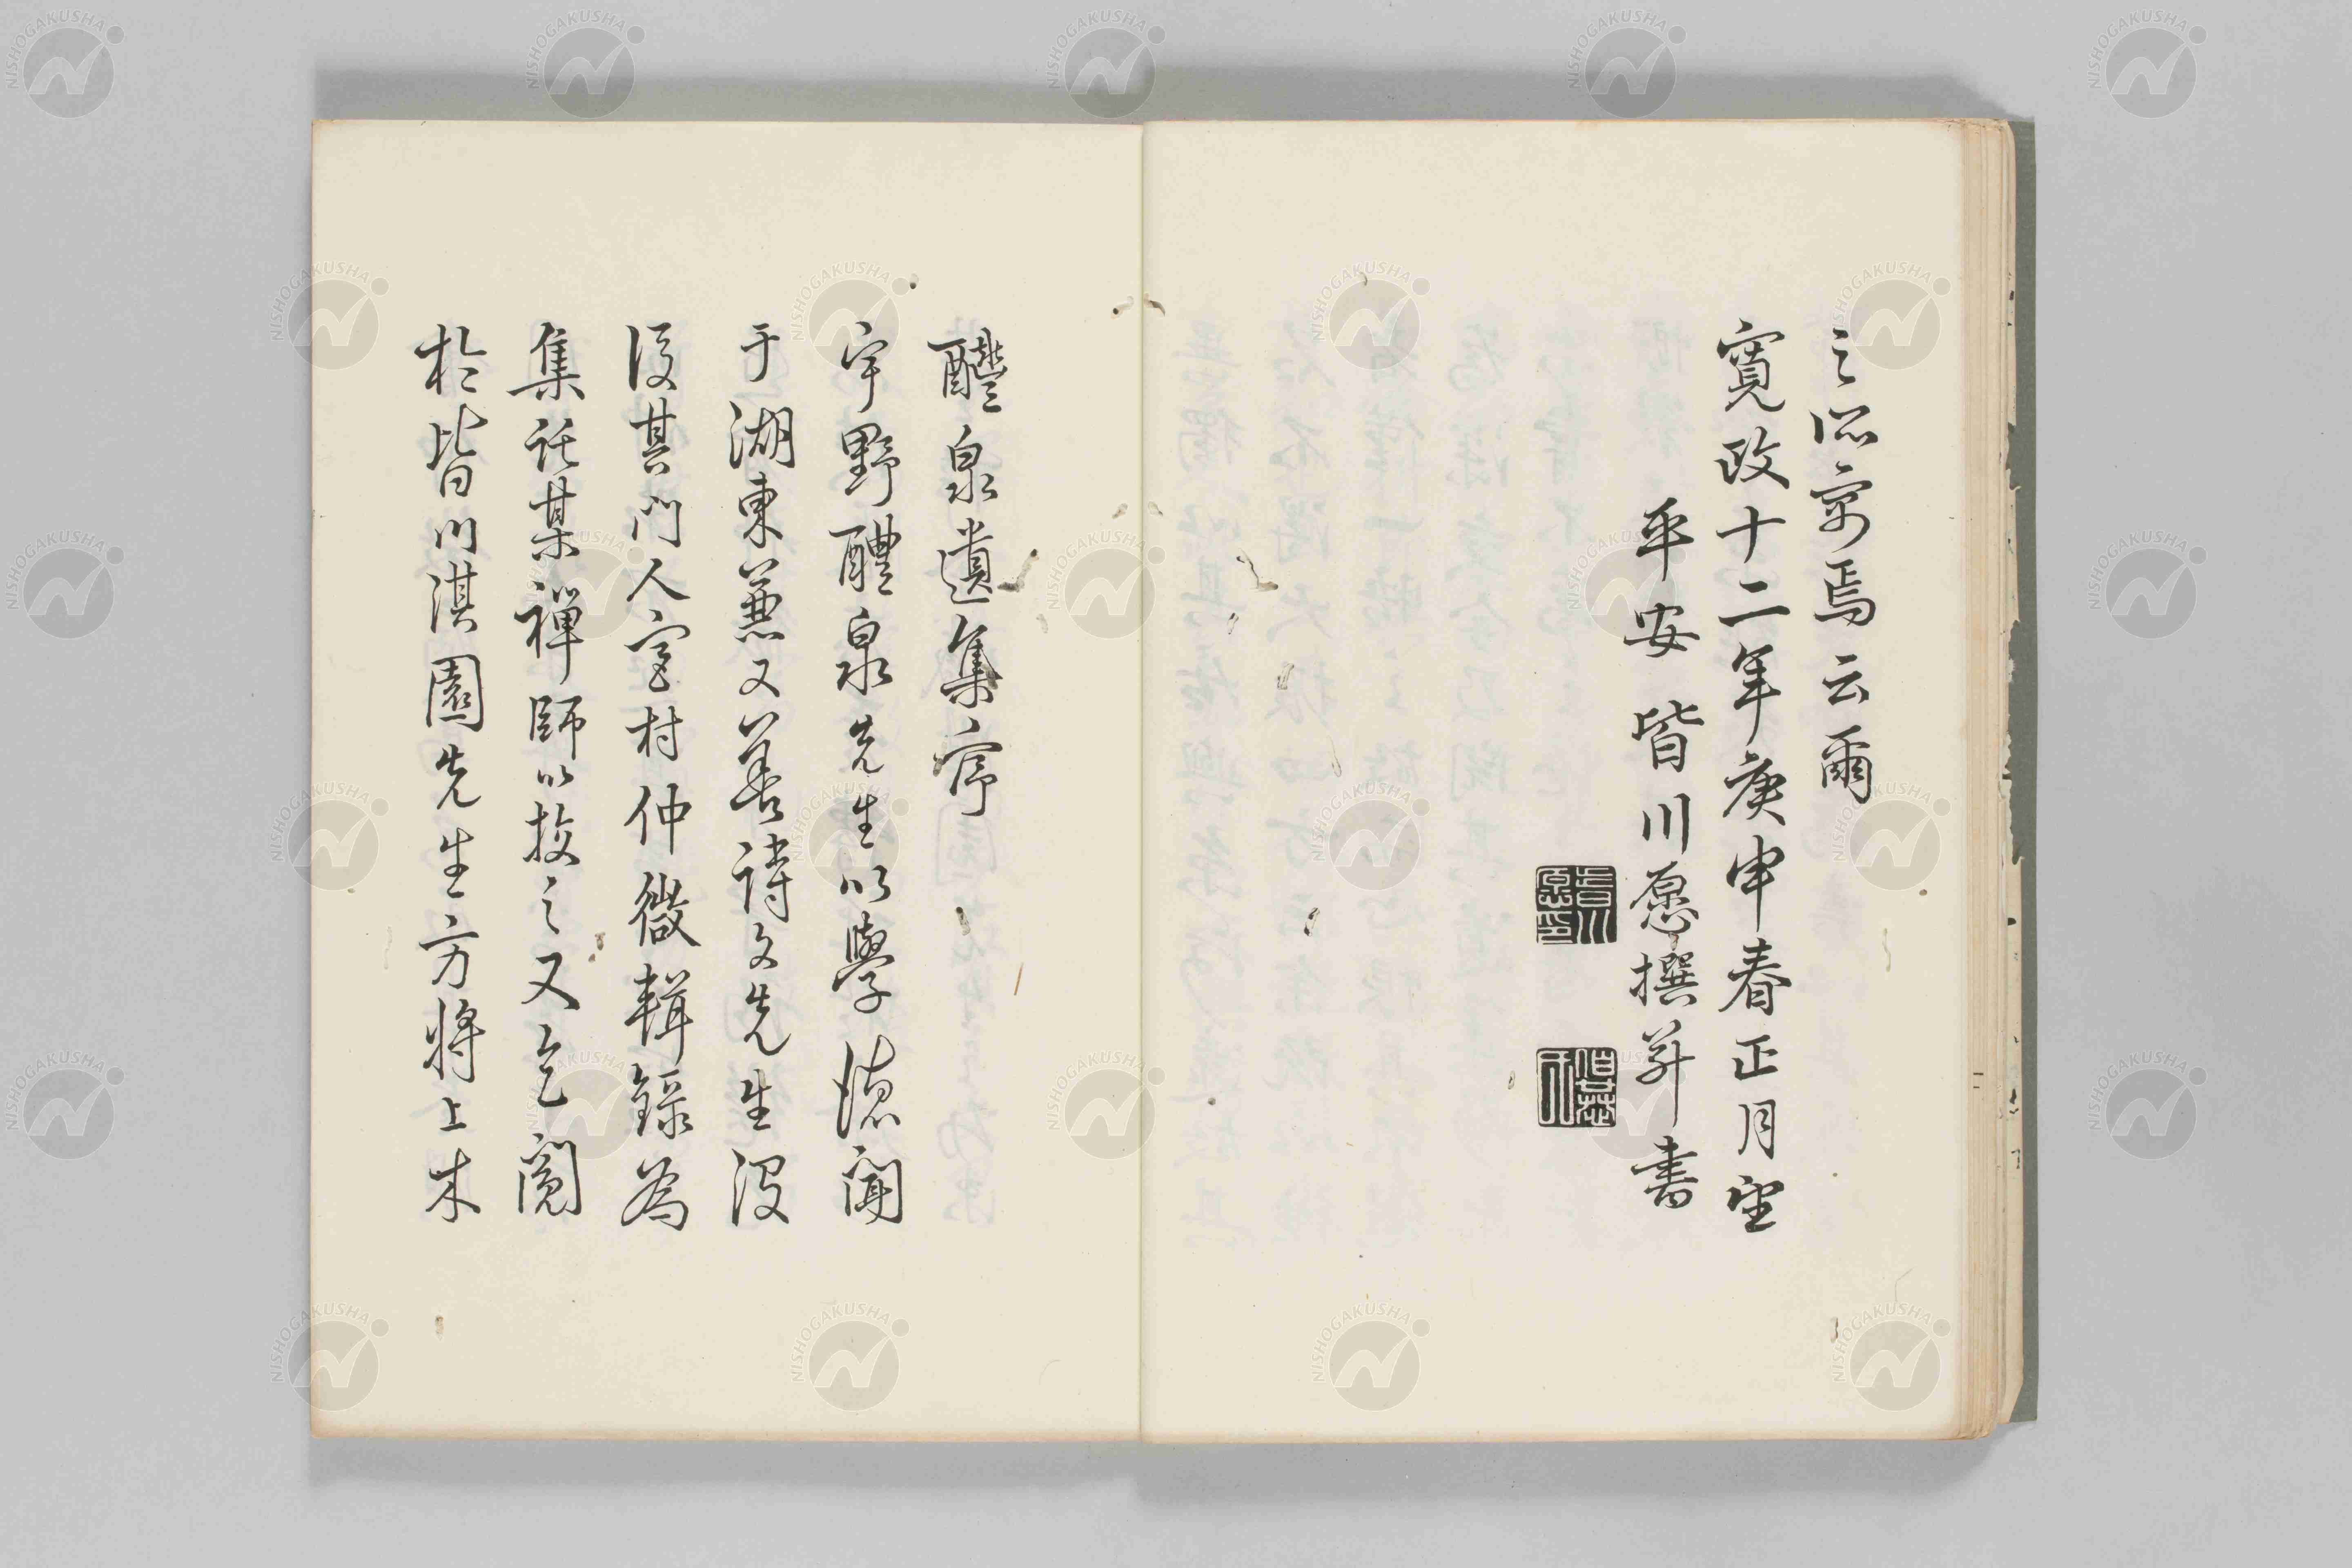 之際寄焉云爾
寛政十二年庚申春正月望
平安 皆川愿撰并書
皆川愿印
伯恭氏
醴泉遺集序
宇野醴泉先生以學德聞
于湖東兼又善詩文先生没
後其門人室村仲微輯錄為
集託某禅師以校之又乞閲
於皆川淇園先生方將上木
NISHOGAKUSHA